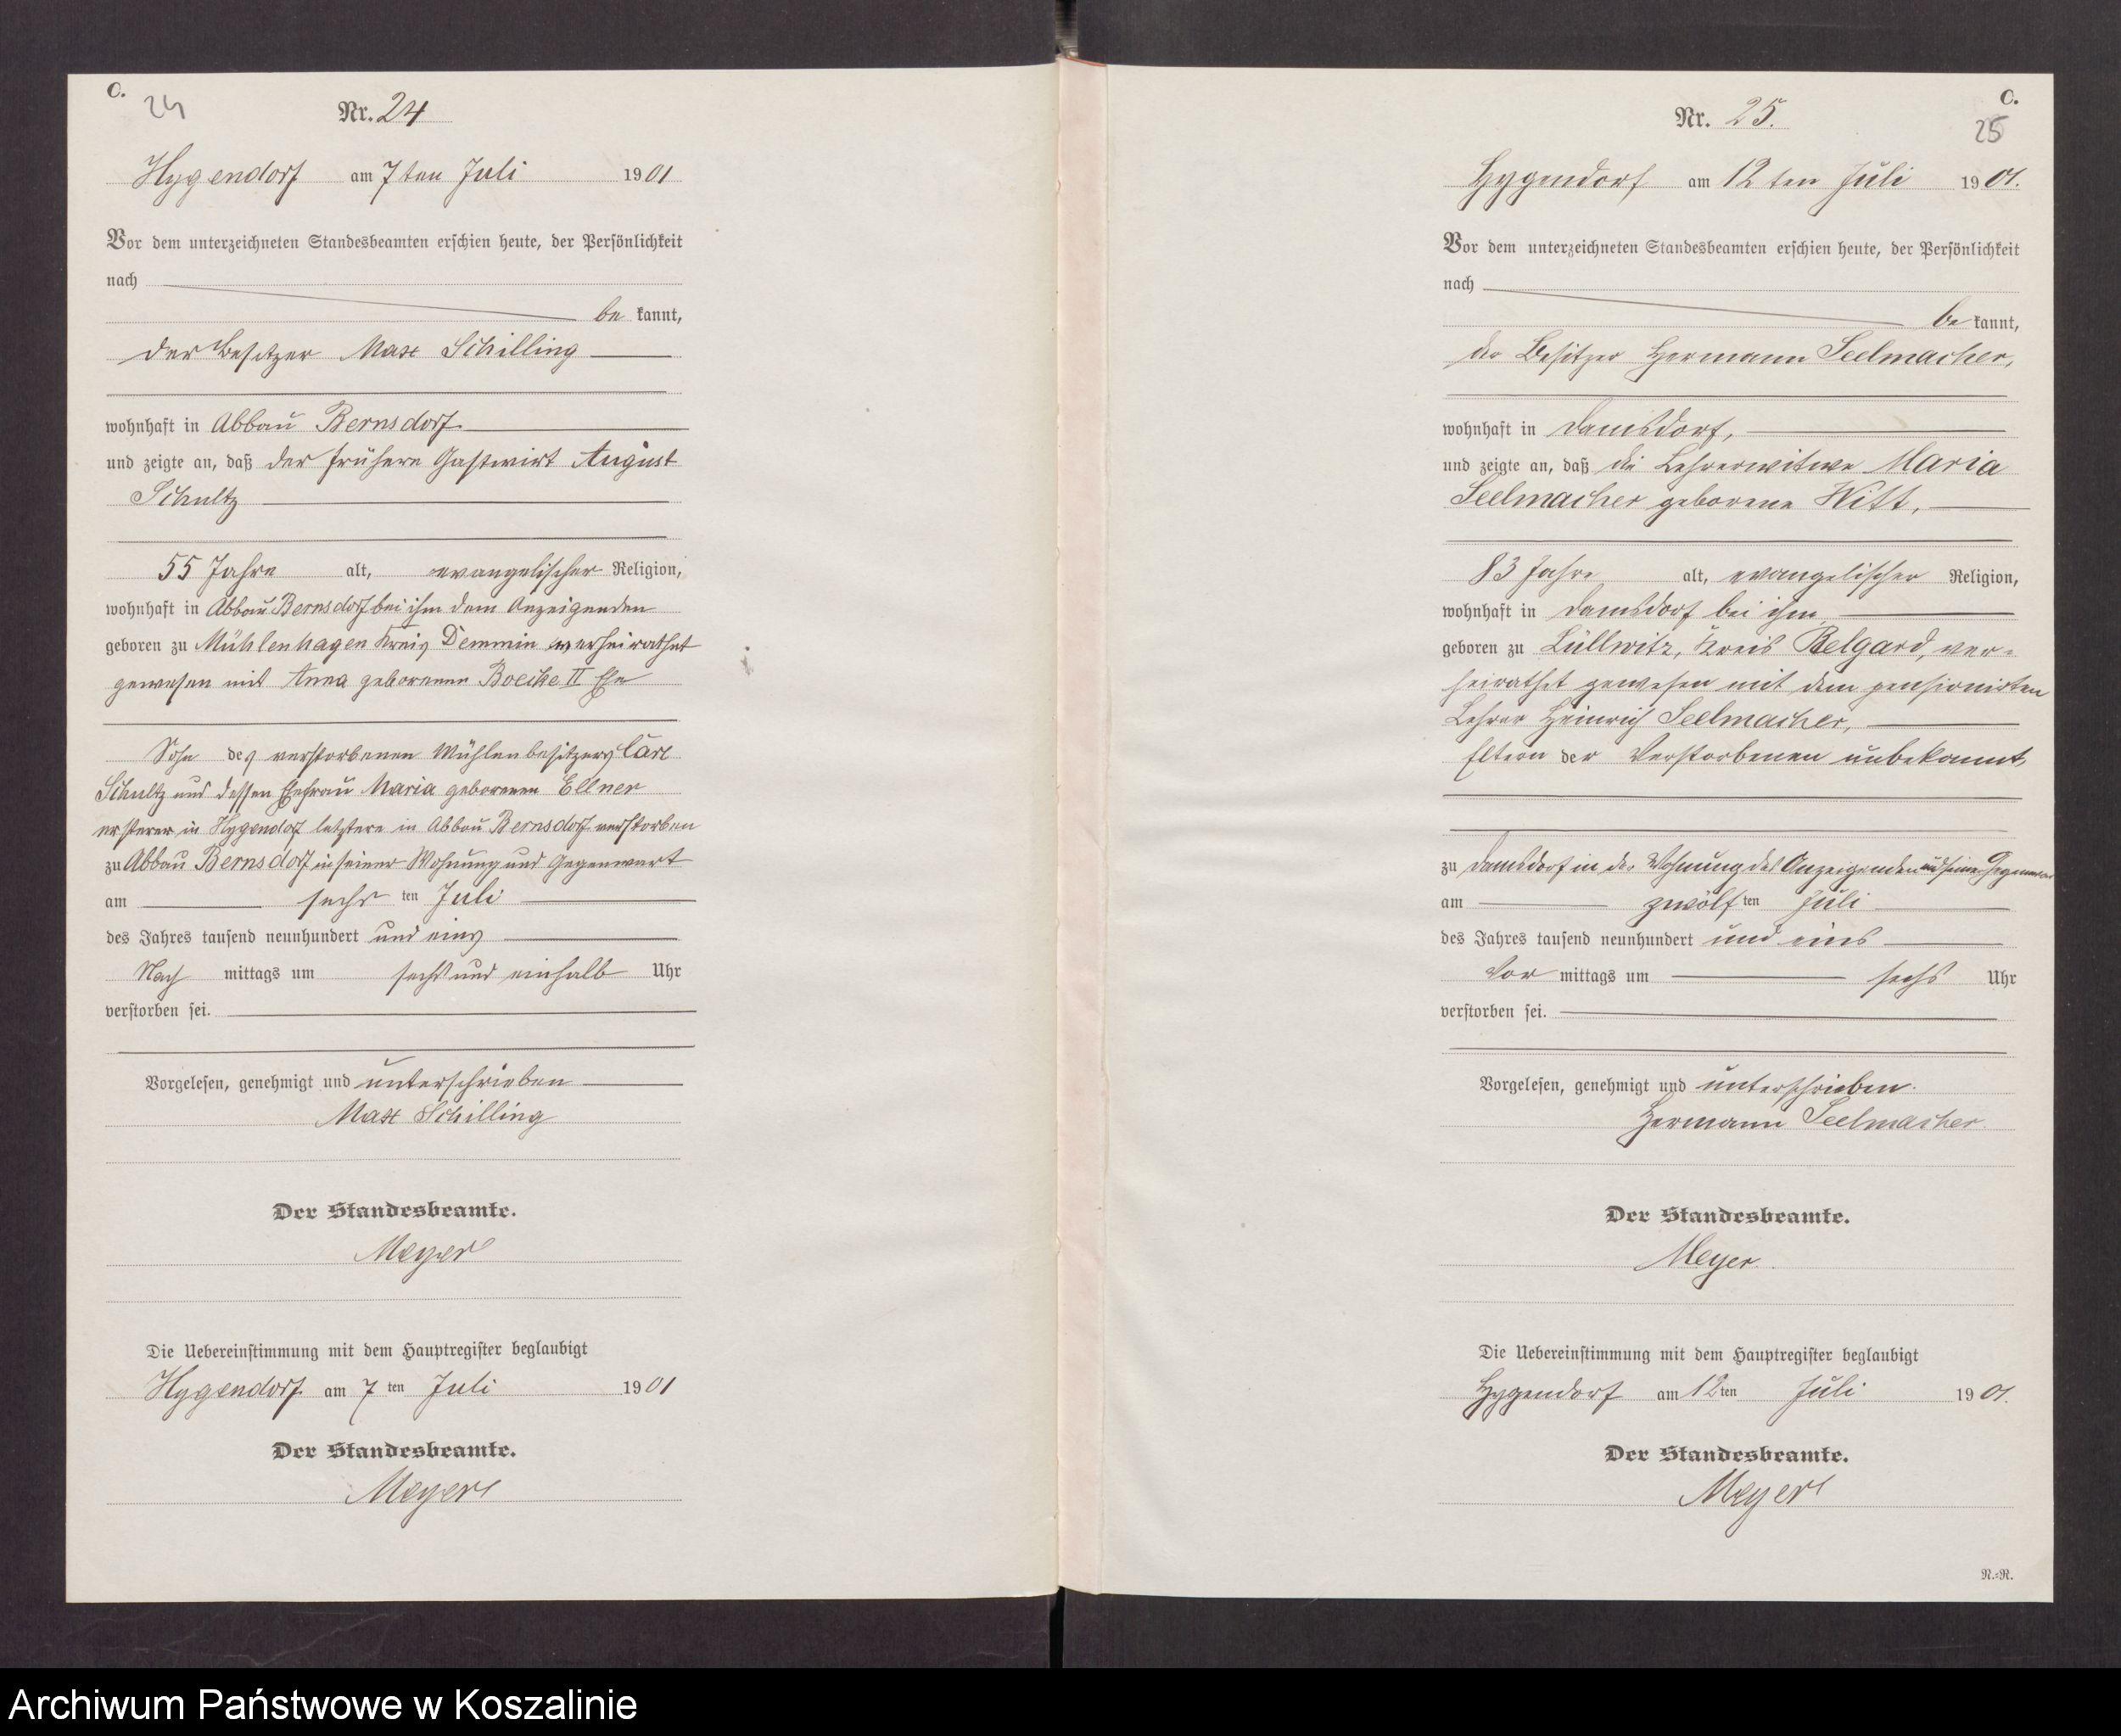 C.
24
Nr. 24
Hygendorf am 7ten Juli 1901
Vor dem unterzeichneten Standesbeamten erschien heute, der Persönlichkeit
nach
be kannt,
der Besitzer Max Schilling
wohnhaft in Abbau Bernsdorf
und zeigte an, daß der frühere Gastwirt August
Schultz
55 Jahre alt, evangelischer Religion,
wohnhaft in Abbau Bernsdorf bei ihm dem Anzeigenden
geboren zu Mühlenhagen Kreis Demmin verheirathet
gewesen mit Anna geborenen II Ehe
Sohn des verstorbenen Mühlenbesitzers Carl
Schultz und dessen Ehefrau Maria geborenen Ellner
ersterer in Hygendorf letztere in Abbau Bernsdorf verstorben
zu Abbau Bernsdorf in seiner Wohnung und Gegenwart
am sechs ten Juli
des Jahres tausend neunhundert und eins
Nach mittags um sechs und einhalb Uhr
verstorben sei.
Vorgelesen, genehmigt und unterschrieben
Max Schilling
Der Standesbeamte.
Meyer
Die Uebereinstimmung mit dem Hauptregister beglaubigt
Hygendorf am 7 ten Juli 1901
Der Standesbeamte.
Meyer
C.
25
Nr. 25.
Hygendorf am 12 ten Juli 1901.
Vor dem unterzeichneten Standesbeamten erschien heute, der Persönlichkeit
nach
be kannt,
der Besitzer Hermann Seelmacher,
wohnhaft in Damsdorf,
und zeigte an, daß die Lehrerwitwe Maria
Seelmacher geborene Witt,
83 Jahre alt, evangelischer Religion,
wohnhaft in Damsdorf bei ihm
geboren zu Lüllwitz, Kreis Belgard, ver-
heirathet gewesen mit dem pensionirten
Lehrer Heinrich Seelmacher,
Eltern der Verstorbenen unbekannt,
zu Damsdorf in der Wohnung des Anzeigenden und seiner Gegenwart
am zwölf ten Juli
des Jahres tausend neunhundert und eins
Vor mittags um sechs Uhr
verstorben sei.
Vorgelesen, genehmigt und unterschrieben.
Hermann Seelmacher
Der Standesbeamte.
Meyer
Die Uebereinstimmung mit dem Hauptregister beglaubigt
Hygendorf am 12 ten Juli 1901.
Der Standesbeamte.
Meyer
N.=R.
Archiwum Państwowe w Koszalinie